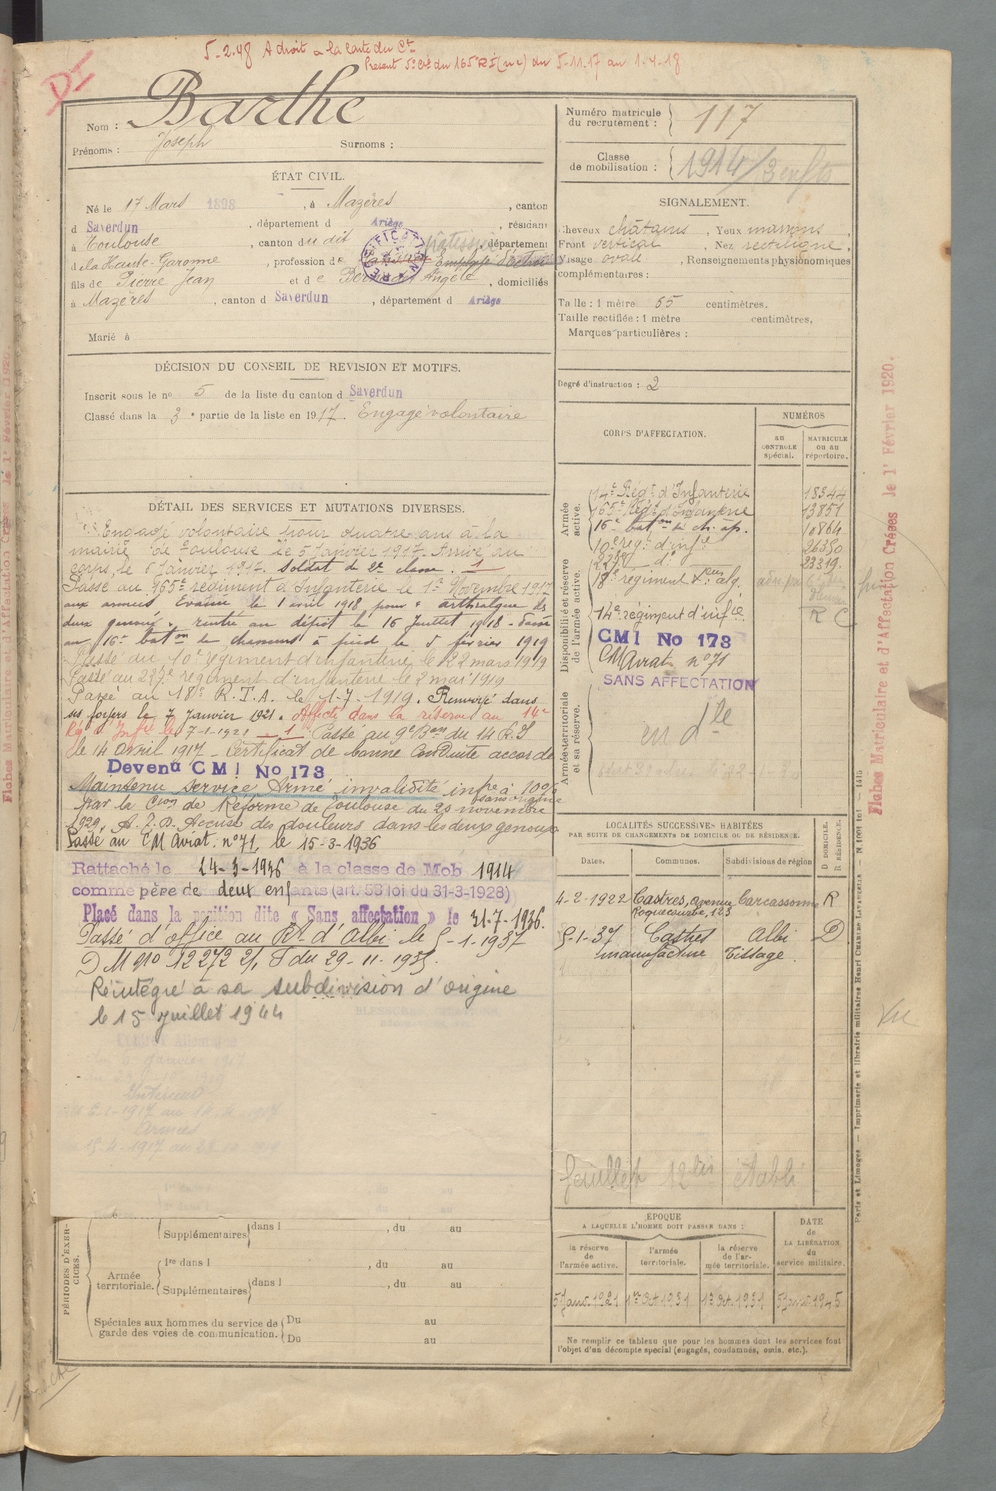 5-2-48 A droit a la Carte du Ct
Présent 5e Cie du 165e RI (uc) du 5-11-17 au 1-4-18
DI
Nom : Barthe
Prénoms : Joseph Surnoms :
ÉTAT CIVIL.
Né le 17 Mars 1898, à Mazères, canton
d Saverdun, département d Ariège, résidant
à Toulouse, canton du dit, département
d e la Haute-Garonne, profession de
RECTIFICATION
fils de Pierre Jean et d e Angèle, domiciliés
à Mazères, canton d Saverdun, département d Ariège
Marié à
DÉCISION DU CONSEIL DE REVISION ET MOTIFS.
Inscrit sous le no 5 de la liste du canton d Saverdun
Classé dans la 3e partie de la liste en 1917. Engagé volontaire
DÉTAIL DES SERVICES ET MUTATIONS DIVERSES.
Engagé volontaire pour quatre ans à la
mairie de Toulouse le 5 Janvier 1917. Arrivé au
corps le 5 janvier 1917. Soldat de 2e classe. 1
Passé au 165e régiment d'Infanterie le 1er Novembre 1917
aux armées. Evacué le 1 avril 1918 pour arthralgie des
deux genoux. rentré au dépôt le 16 Juillet 1918 - Passé
au 16e baton de chasseurs à pied le 5 février 1919
Passé au 10e régiment d'infanterie le 28 mars 1919
Passé au 227e régiment d'infanterie le 2 mai 1919
Passé au 18e R.T.A. le 1-7-1919. Renvoyé dans
ses foyers le 7 Janvier 1921. Affecté dans la réserve au 14e
Rgt d'Infie le 7-1-1921 - 1 Passé au 9e Bon du 14 R.I
le 14 Avril 1917 - Certificat de bonne conduite accordé
Devenu CMI No 173
Maintenu service Armé invalidité infre à 10%
sans origine
par la Cion de Réforme de Toulouse du 29 novembre
1929. Accuse des douleurs dans les deux genoux
Passé au CM Aviat. no 71, le 15-3-1936
Rattaché le 24-3-1936 à la classe de Mob 1914
comme père de deux enfants (art. 58 loi du 31-3-1928)
Placé dans la position dite « Sans affectation » le 31-7-1936
Passé d'office au Rt d'Albi le 5-1-1937
DM no 12272 2/1 du 29-11-1935.
Réintégré à sa subdivision d'origine
le 15 juillet 1944
PÉRIODES D'EXERCICES.
Supplémentaires dans l , du au
Armée territoriale.
1re dans l , du au
Supplémentaires dans l , du au
Spéciales aux hommes du service de garde des voies de communication.
Du au
Du au
Numéro matricule du recrutement : 117
Classe de mobilisation : 1914/3 enfts
SIGNALEMENT.
Cheveux châtains, Yeux marrons
Front vertical, Nez rectiligne.
Visage ovale, Renseignements physionomiques
complémentaires :
Taille : 1 mètre 65 centimètres.
Taille rectifiée : 1 mètre centimètres.
Marques particulières :
Degré d'instruction : 2
CORPS D'AFFECTATION.
NUMÉROS
AU CONTROLE spécial.
MATRICULE OU AU répertoire.
Armée active.
14e Régt d'Infanterie 18544
165e Régt d'Infanterie 13851
16e baton de ch. à p. 10864
10e rég. d'infie 26350
227e d° 23319
18e régiment Tirs alg.
Disponibilité et réserve de l'armée active.
14e régiment d'infie R C
CMI No 173
CM Aviat no 71
SANS AFFECTATION
Armée territoriale et sa réserve.
en dte
LOCALITÉS SUCCESSIVES HABITÉES
PAR SUITE DE CHANGEMENTS DE DOMICILE OU DE RÉSIDENCE.
Dates. Communes. Subdivisions de région D DOMICILE. R RÉSIDENCE.
4-2-1922 Castres, avenue Roquecourbe, 123 Carcassonne R
5-1-37 Castres Albi D
manufacture Tissage
feuillet 12 bis établi
ÉPOQUE
A LAQUELLE L'HOMME DOIT PASSER DANS :
DATE de LA LIBÉRATION du service militaire.
la réserve de l'armée active.
l'armée territoriale.
la réserve de l'armée territoriale.
5 Janv. 1921 1er Oct 1931 1er Oct 1931 5 Janv 1945
Ne remplir ce tableau que pour les hommes dont les services font l'objet d'un décompte spécial (engagés, condamnés, omis, etc.).
Fiches Matriculaire et d'Affectation Créées le 1er Février 1920.
Paris et Limoges. — Imprimerie et librairie militaires Henri CHARLES-LAVAUZELLE
Vu